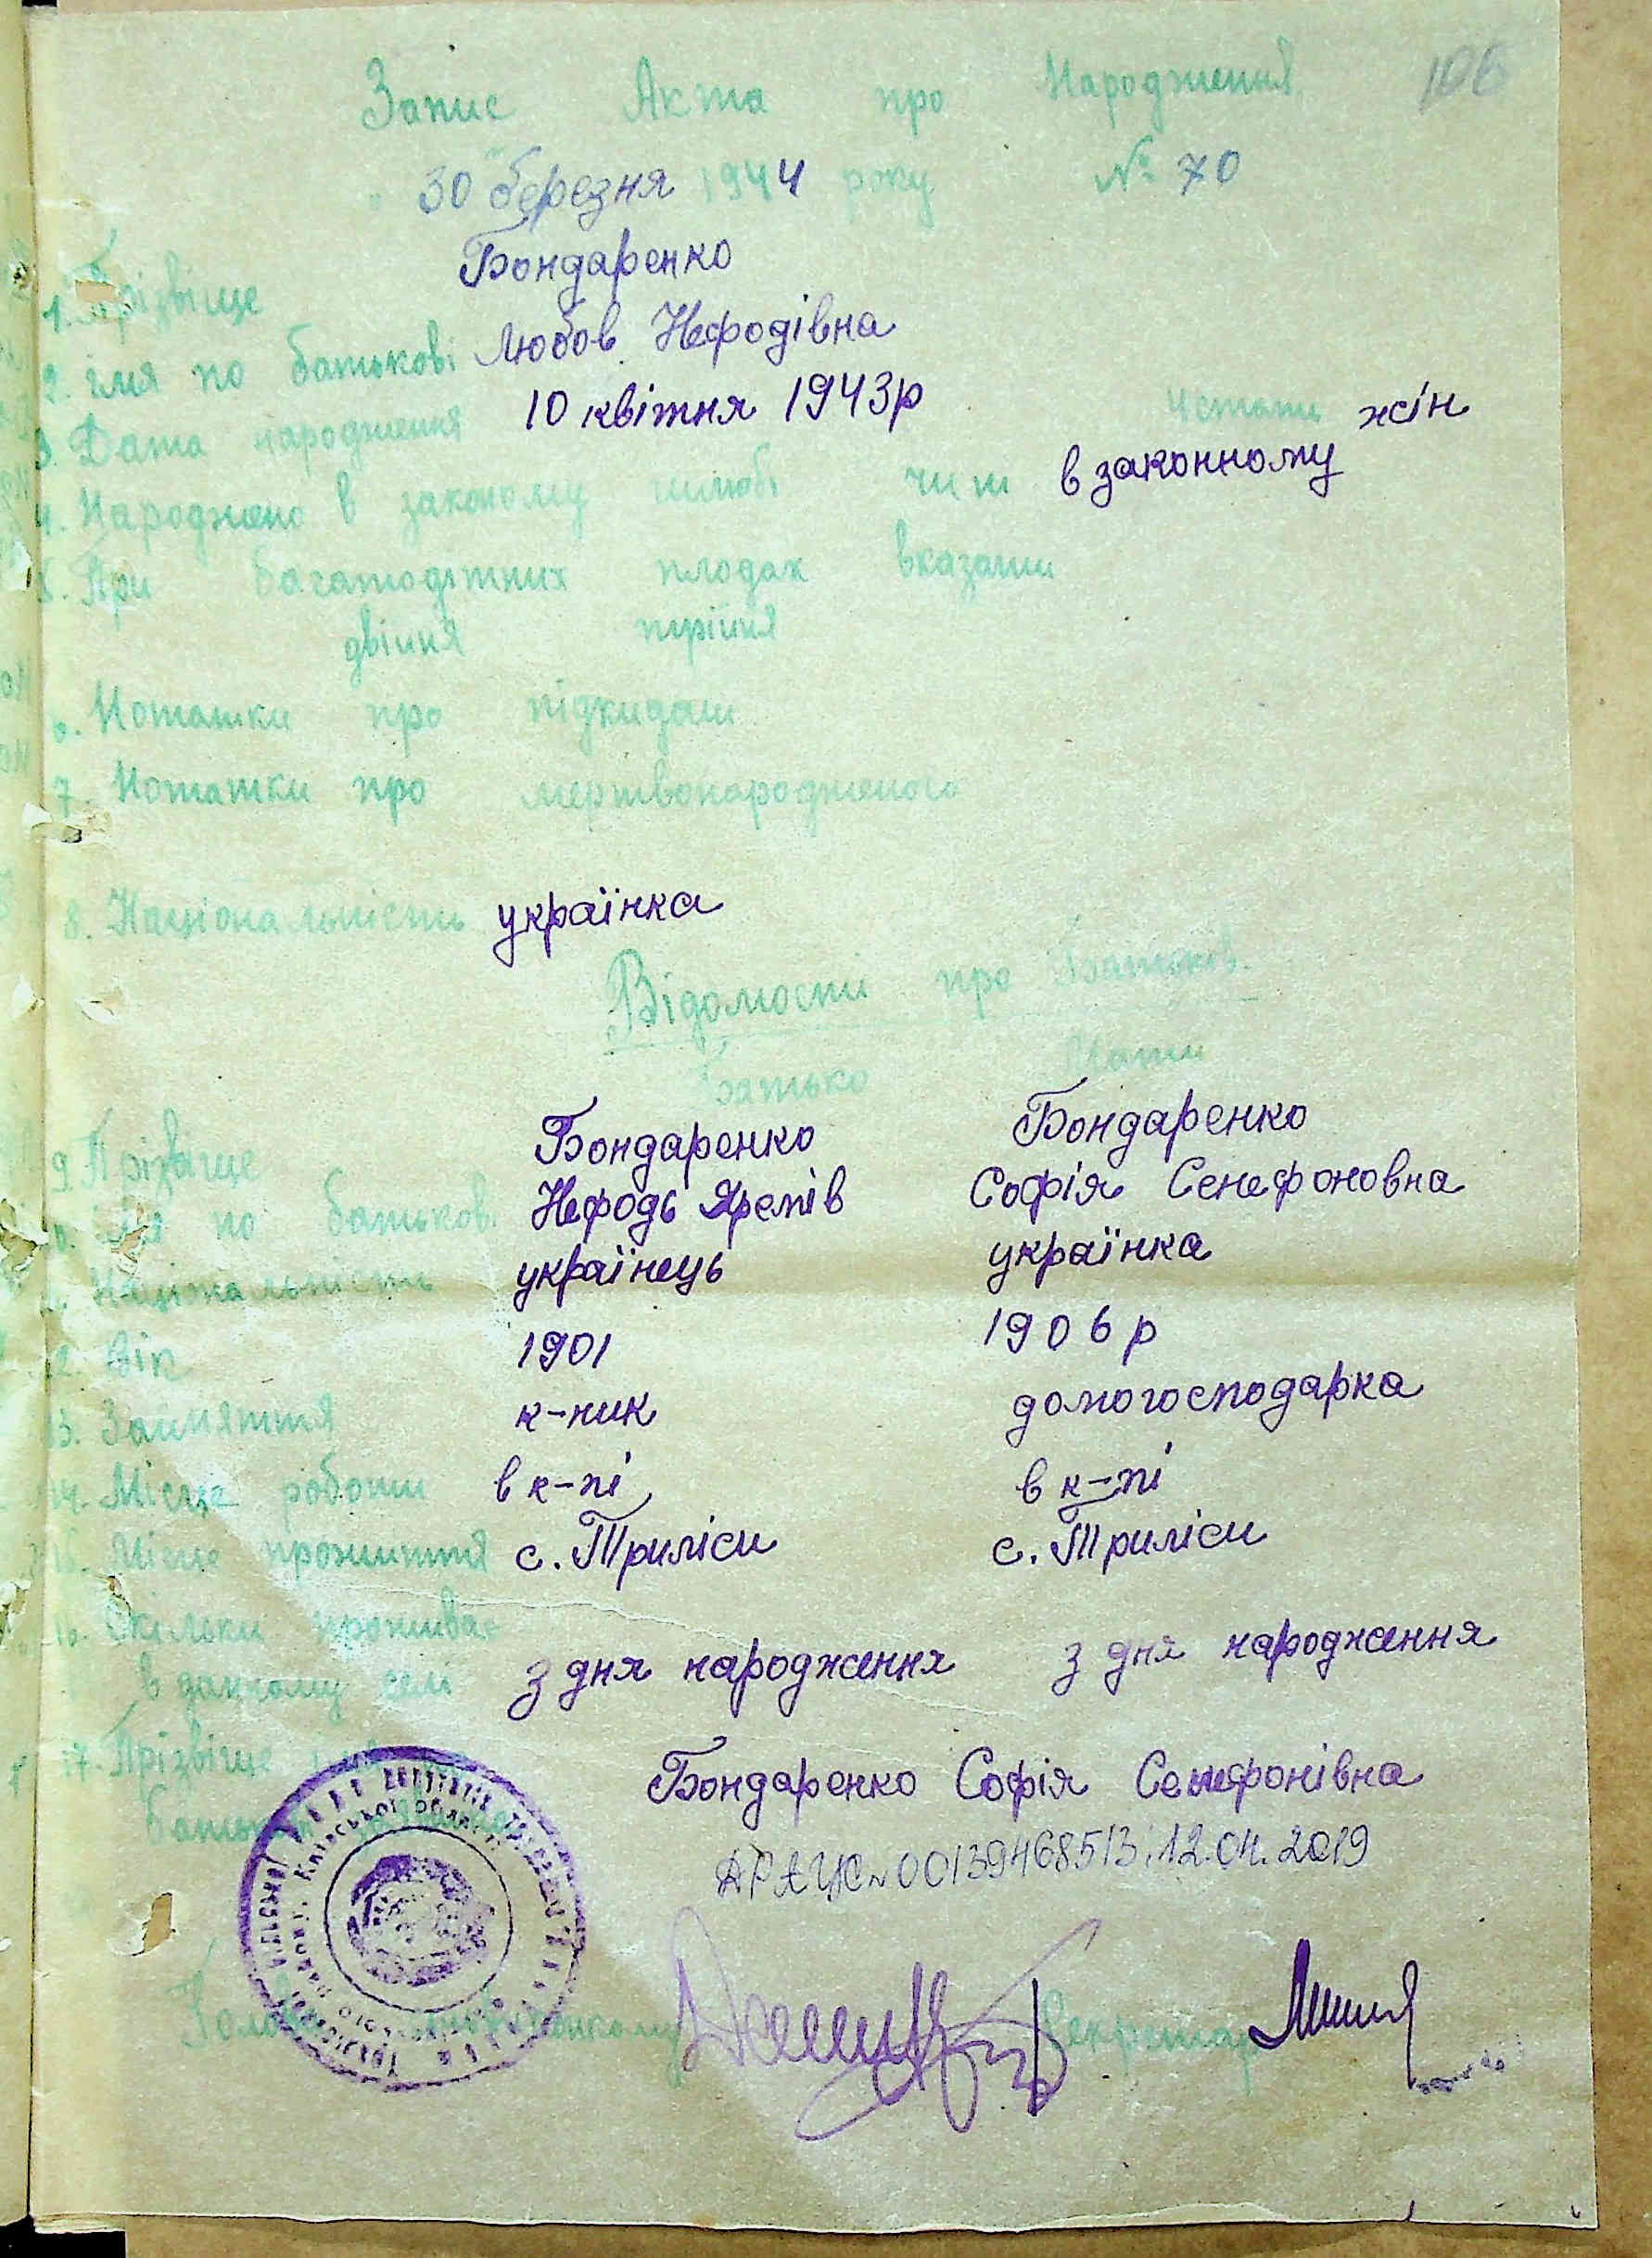 106
Запис Акта про Народження
"30" березня 1944 року № 70
1. Прізвище Бондаренко
2. імя по батькові Любов Нефодівна
3. Дата народження 10 квітня 1943р Истать жін
4. Народжено в законому шлюбі чи ні в законному
5. При багатодітних плодах вказати
двійня трійня
6. Нотатки про підкидаш
7. Нотатки про мертвонародженого
8. Національність українка
Відомости про Батьків.
Батько Мати
9 Прізвіще Бондаренко Бондаренко
імя по батькові Нефодь Яремів Софія Сенефоновна
Національність українець українка
12. Вік 1901 1906 р
13. Заиняття к-ник домогосподарка
14. Місце роботи в к-пі в к-пі
15. Місце прожиття с. Триліси с. Триліси
16. Скільки проживає
в данному селі з дня народження з дня народження
17. Прізвіще
Бондаренко Софія Сенефонівна
ДРАЦС 00139468513; 12.04.2019
Голова Секретар
Київської області